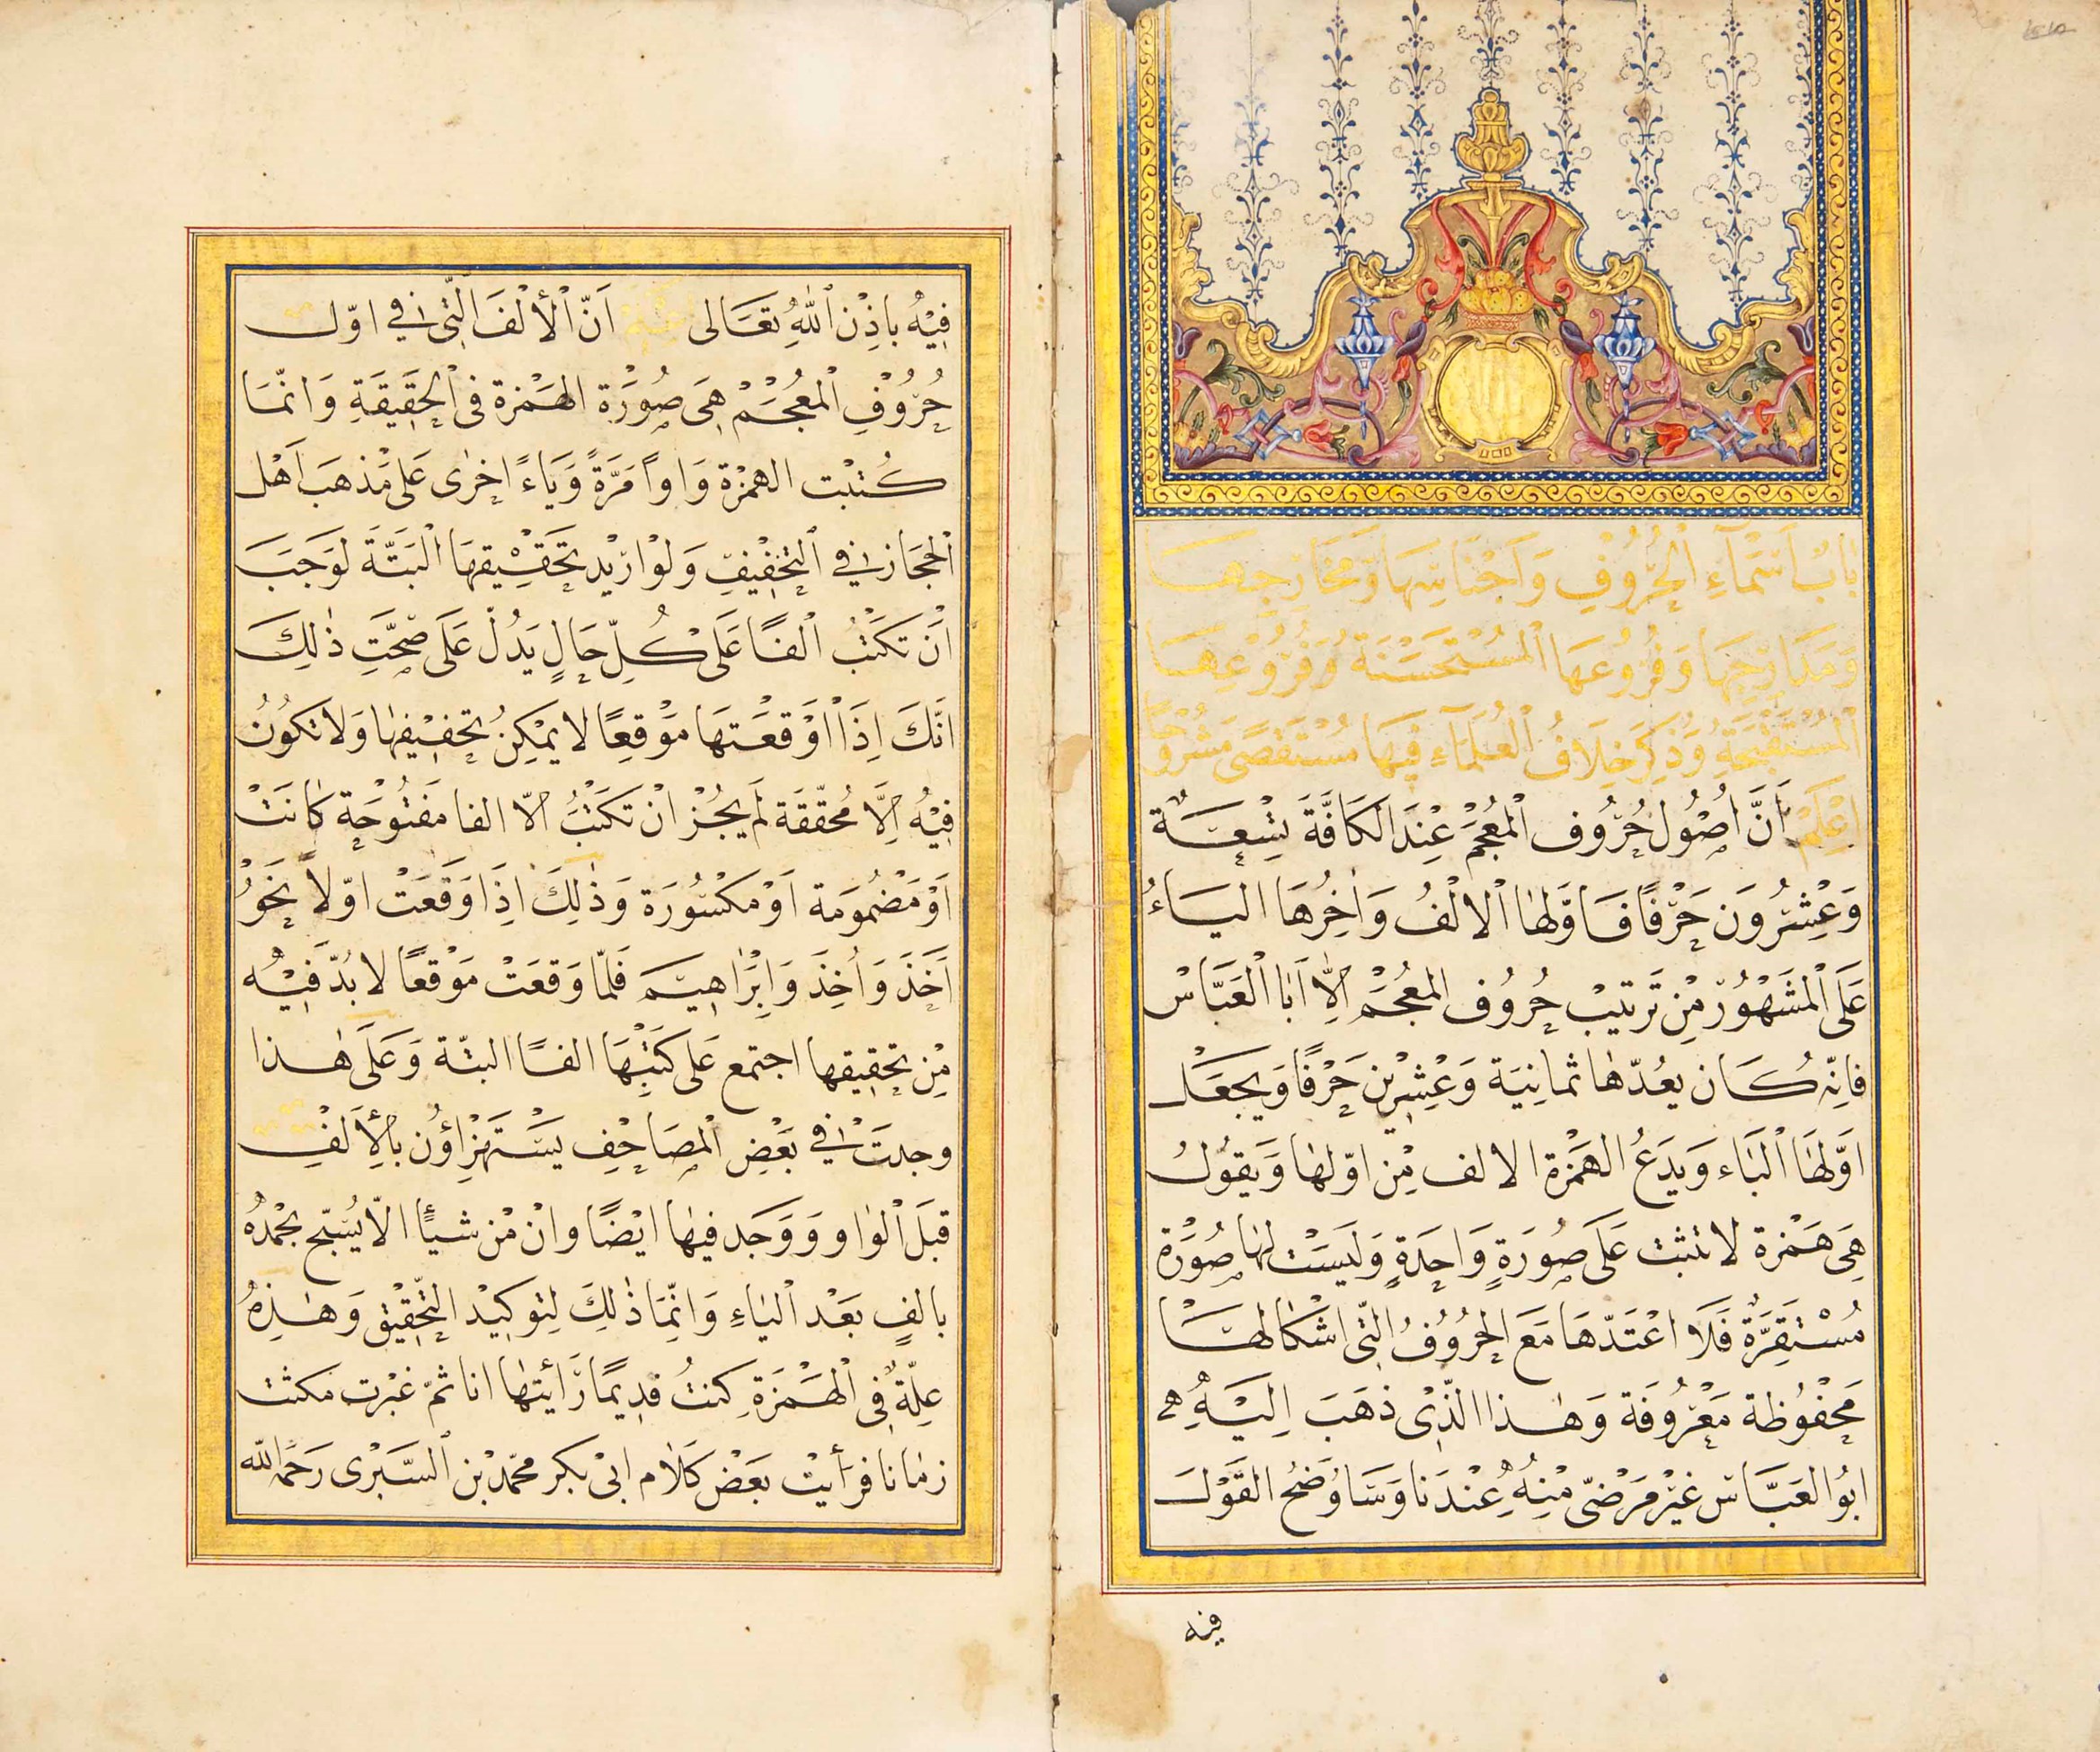 بَابُ اَسْمَآءِ الْحُرُوْفِ وَاَجْنَاسِهَا وَمَخَارِجِهَا
وَمَدَارِجِهَا وَفُرُوْعِهَا الْمُسْتَحْسَنَةِ وَفُرُوْعِهَا
الْمُسْتَقْبَحَةِ وَذِكْرِ خِلَافُ الْعُلَمَآءِ فِيْهَا مُسْتَقْصًى مَشْرُوْحًا
اِعْلَمْ اَنَّ اُصُوْل حُرُوف الْمُعْجَمْ عِنْدَ الكَافَّةَ تِسْعَةٌ
وَعِشْرُونَ حَرْفًا فَاوَّلهَا الْالْفُ وَاٰخِرُهَا اليَاءُ
عَلَى الْمَشَهْوُرْ مِنْ تَرتيبْ حُرُوُف المعُجَمْ اِلّا اَبَا الْعَبَّاسْ
فانِّهُ كَان يعُدّهَا ثمانِيَة وَعْشِرْين حَرْفًا وَيجعَل
اوَّلهَا الْبَاء وَيدَعُ الهَمْزة الالف مِنْ اوّلها وَيقوُلُ
هِى هَمْزة لا تثبت عَلَى صوُرَةٍ وَاحِدَةٍ وَلَيسَتْ لهَا صوُرَة
مُسْتَقِرَّةٌ فَلَا اعْتَدّهَا مَعَ الحُروُفُ الّتى اشْكالهَا
مَحْفوُظة مَعْرُوفَة وَهٰذا الذِّىْ ذهَبَ اِلَيْهِ
ابُو العَبَّاس غيْر مَرْضىّ مْنِهُ عِنْدَنا وَسَاوُضحُ القَوْلَ
فيه
فِيْهُ باذِنْ اللهِ تعَالى اَنّ الْاَلْفَ الَّتى فى اوّل
حُرُوُفِ الْمعُجَمْ هِىَ صوُرَة الهَمْزة فى الحَقِيقَةِ وَانّمَا
كُتبْت الهمْزة وَاواً مَرَّةً وَيَاءً اخرٰى عَلى مَذهَب اَهْل
الْحجَاز فى التخفْيفِ وَلوْ ارِيْد تحَقيِقهَا الْبَتَّة لوَجَبَ
اَنْ تكَتْبُ الْفًا عَلَى كُلّ حَالٍ يَدُلّ عَلَى صّحَّتِ ذٰلِكَ
انّكَ اِذَا اوْقعَتهَا مَوْقِعًا لا يمْكِنُ تخفيِفهَا وَلا تكوُنُ
فيْهُ اِلَّا مُحقّقَة لَم يجُزْ انْ تكَتْبُ الّا الفا مَفتوُحَة كانَتْ
اَوْ مَضْمُومَة اَوْ مكسُورَة وَذٰلِكَ اذِا وَقعَتْ اوّلاً نَحَوُ
اَخَذَ وَاُخِذَ وَابِرَاهيم فَلمّا وَقعَتْ مَوْقعًا لا بُدّ فِيْه
مِنْ تحَقِيقها اجتمع عَلى كَتْبِهَا الفًا البتّة وَعَلَى هٰذا
وجدَت فى بَعْض الْمصَاحِف يَسْتَهزِاؤُن بالْاَلفِ
قبَلَ الْوَاو وَوَجَد فيهَا ايْضًا وانْ مْن شيأً الاّ يُسّبح بحْمدهُ
بالفٍ بَعْد الْيَاءِ وَانِّمَا ذٰلِكَ لِتوكِيْد التّحَقيْق وَهٰذِهُ
عِلّةٌ فى الْهَمْزَةِ كنتُ قدِيمًا رَأيتهَا انا ثمّ غبْرت مكثت
زمَانا فرأيتْ بعَضْ كَلاٰم ابىْ بكر محّمد بْن السَّرىْ رَحمَهُ اللّه